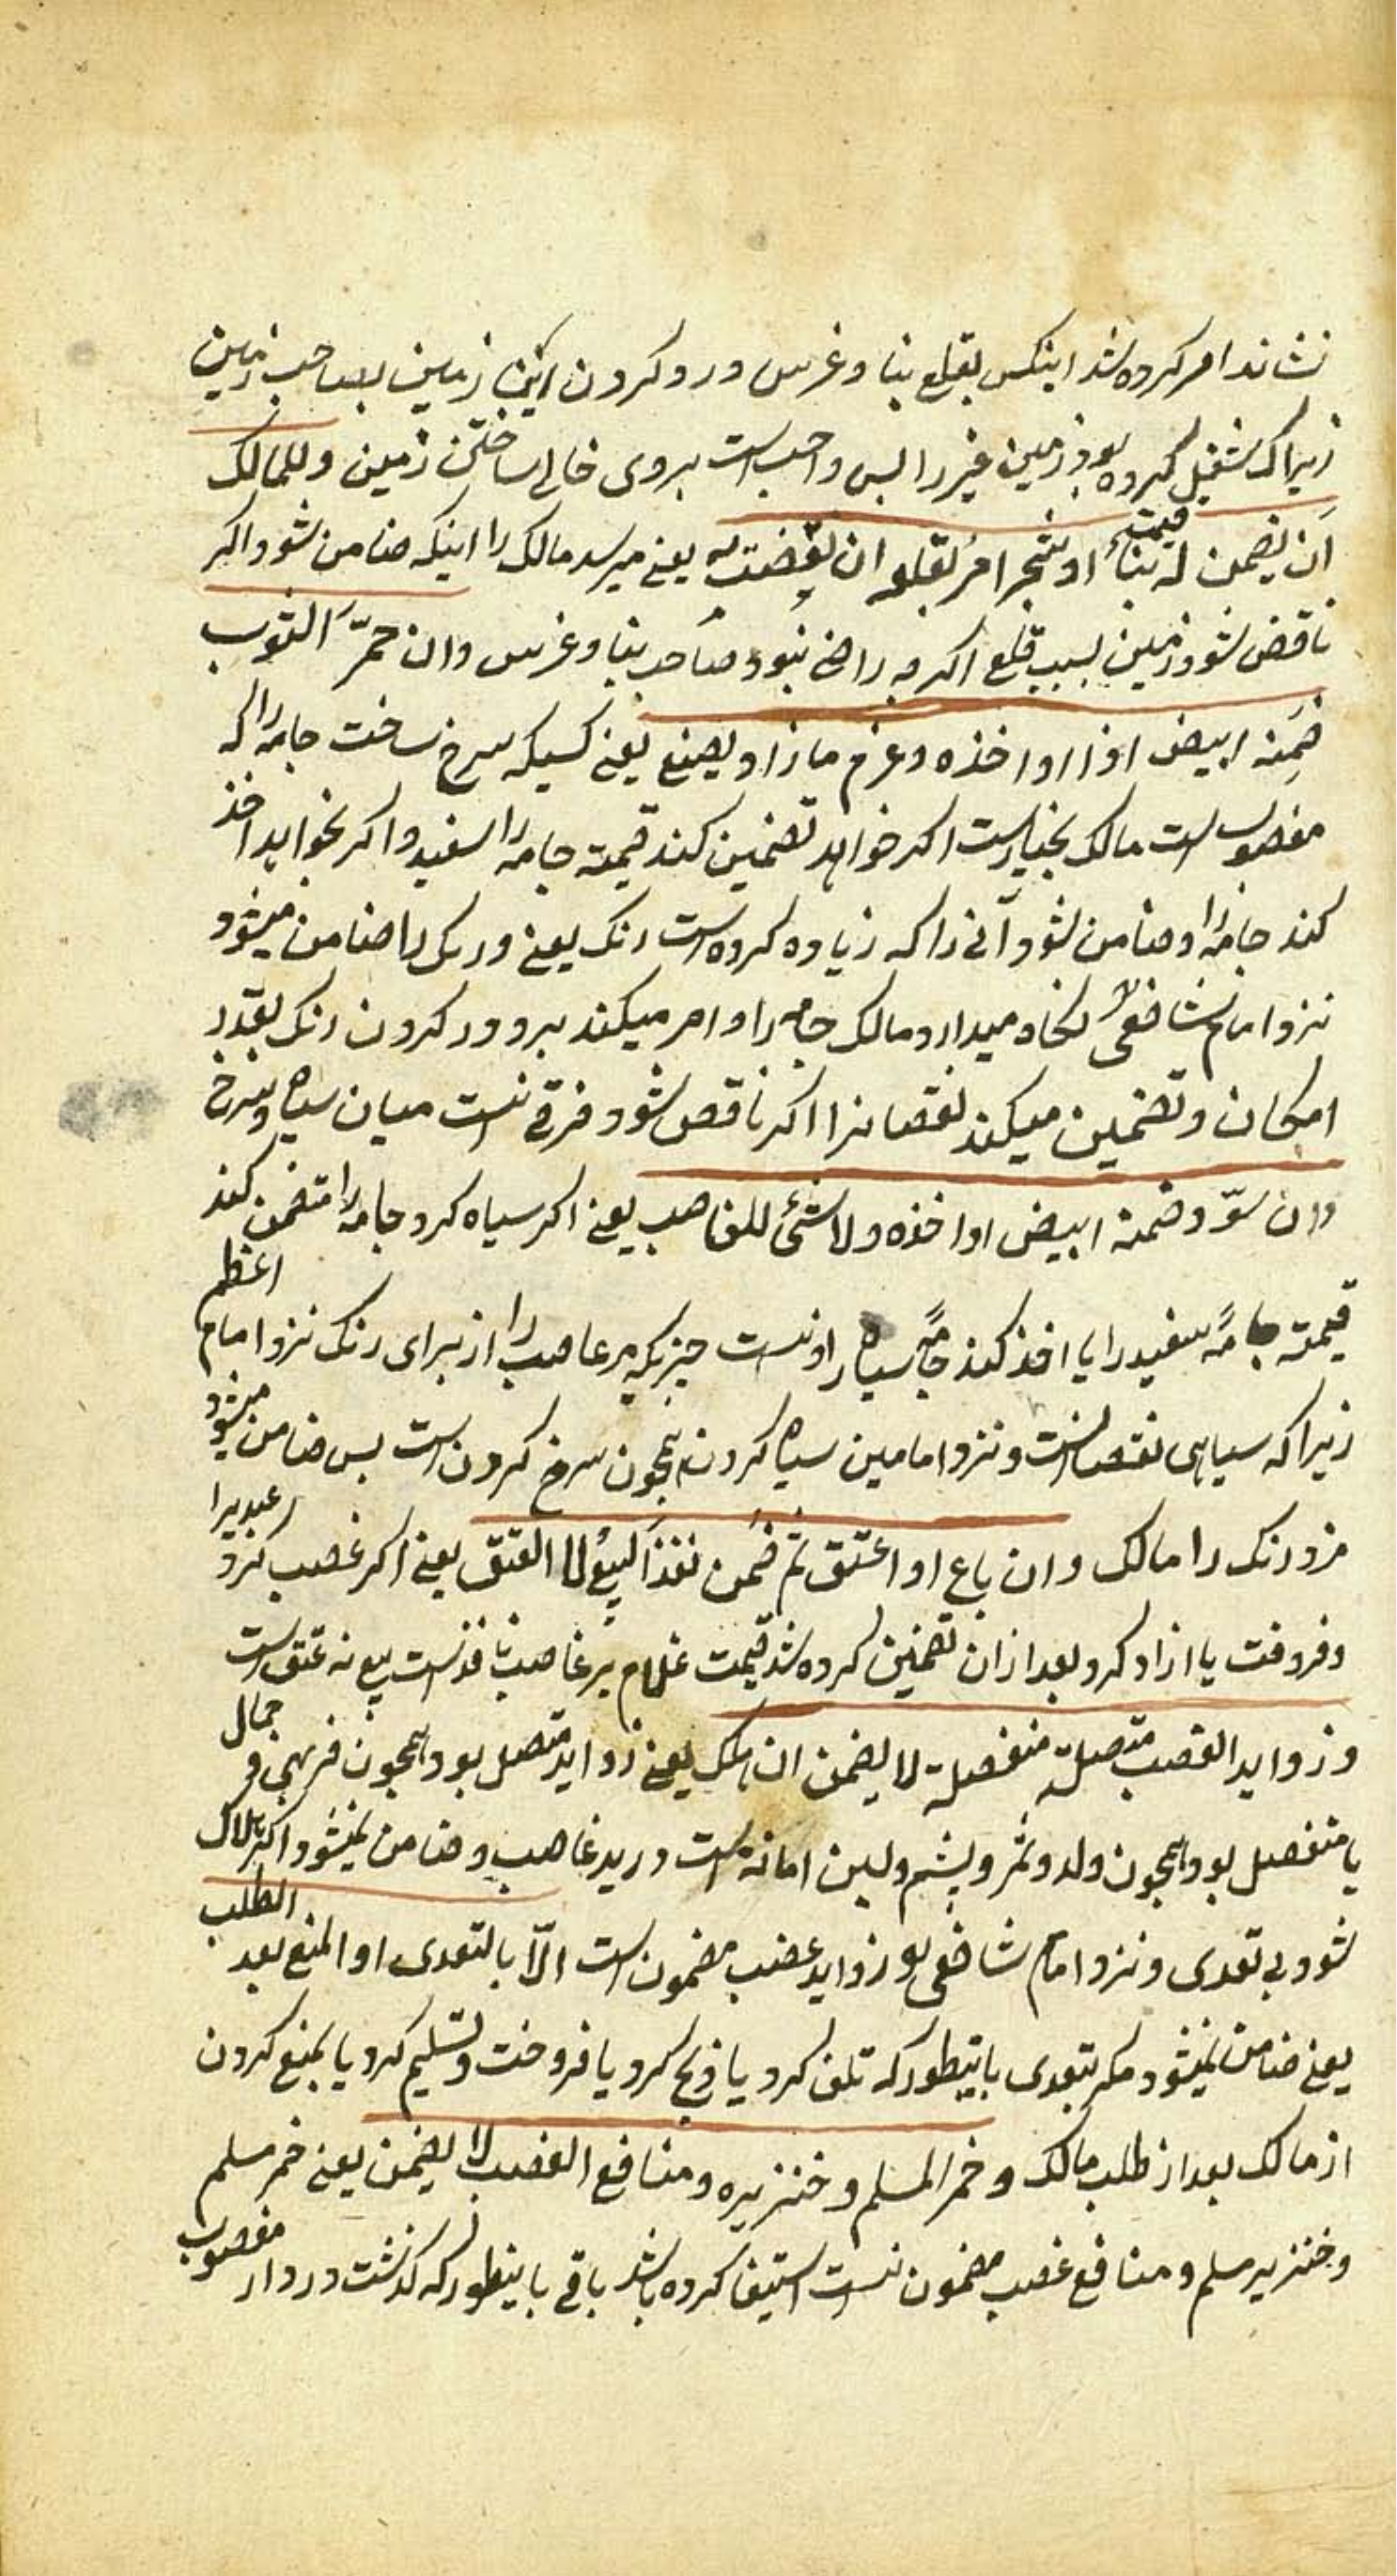 نشاند امر کرده شد اینکس بقلع بنا و غرس و رد کردن این زمین بصاحب زمین
زیراک شغیل کرده بود زمین غیر را بس واجب است بروی خالی ساختن زمین و للمالک
ان یضمن له قیمت بناء او شجر امر بقلعه ان نقصت به یعنی میرسد مالک را اینکه ضامن شود اکر
ناقص شود زمین بسبب قلع اکرچه راضی نبود صاحب بنا و غرس وان حمّر الثوب
ضمنه ابیض او اخذه و غرم ما زاد بصبغ یعنی کسیکه سرخ ساخت جامه را که
مغصوب است مالک بخیارست اکر خواهد تضمین کند قیمة جامه را سفید و اکر بخواهد اخذ
کند جامه را و ضامن شود آنی را که زیاده کرده است رنک یعنی و رنک را ضامن میشود
نزد امام شافعی نکاه میدارد مالک جامه را و امر میکند بر دور کردن رنک بقدر
امکان و تضمین میکند نقصانرا اکر ناقص شود و فرقی نیست میان سیاه و سرخ
وان سوّد ضمنه ابیض او اخذه ولا شئ للغاصب یعنی اکر سیاه کرد جامه را متضمن کند
قیمة جامهٔ سفید را یا اخذ کند جامهٔ سیاه را و نیست چیزیکه مر غاصب را از برای رنک نزد امام اعظم
زیراکه سیاهی نقصانست و نزد امامین سیاه کردن همچون سرخ کردن است بس ضامن میشود
مزد رنک را مالک وان باع او اعتق ثم ضمن نفذ البیع لا العتق یعنی اکر غصب کرد عبدیرا
و فروخت یا ازاد کرد بعد ازان تضمین کرده شد قیمت غلام بر غاصب نافذست بیع نه عتق است
و زواید الغصب متصلة منفصلة لا یضمن ان هلک یعنی زواید متصل بود همچون فربهی و جمال
یا منفصل بود همچون ولد و ثمر و پشم و لبن امانة است در ید غاصب و ضامن نمیشود اکر هلاک
شود بی تعدی و نزد امام شافعی زواید غصب مضمون است الّا بالتعدی او المنع بعد الطلب
یعنی ضامن نمیشود مکر بتعدی باینطور که تلف کرد یا ذبح کرد یا فروخت و تسلیم کرد یا بمنع کردن
از مالک بعد از طلب مالک و خمر المسلم و خنزیره و منافع الغصب لا یضمن یعنی خمر مسلم
و خنزیر مسلم و منافع غصب مضمون نیست استیفا کرده باشد باقی باینطور که گذشت در دار مغصوب